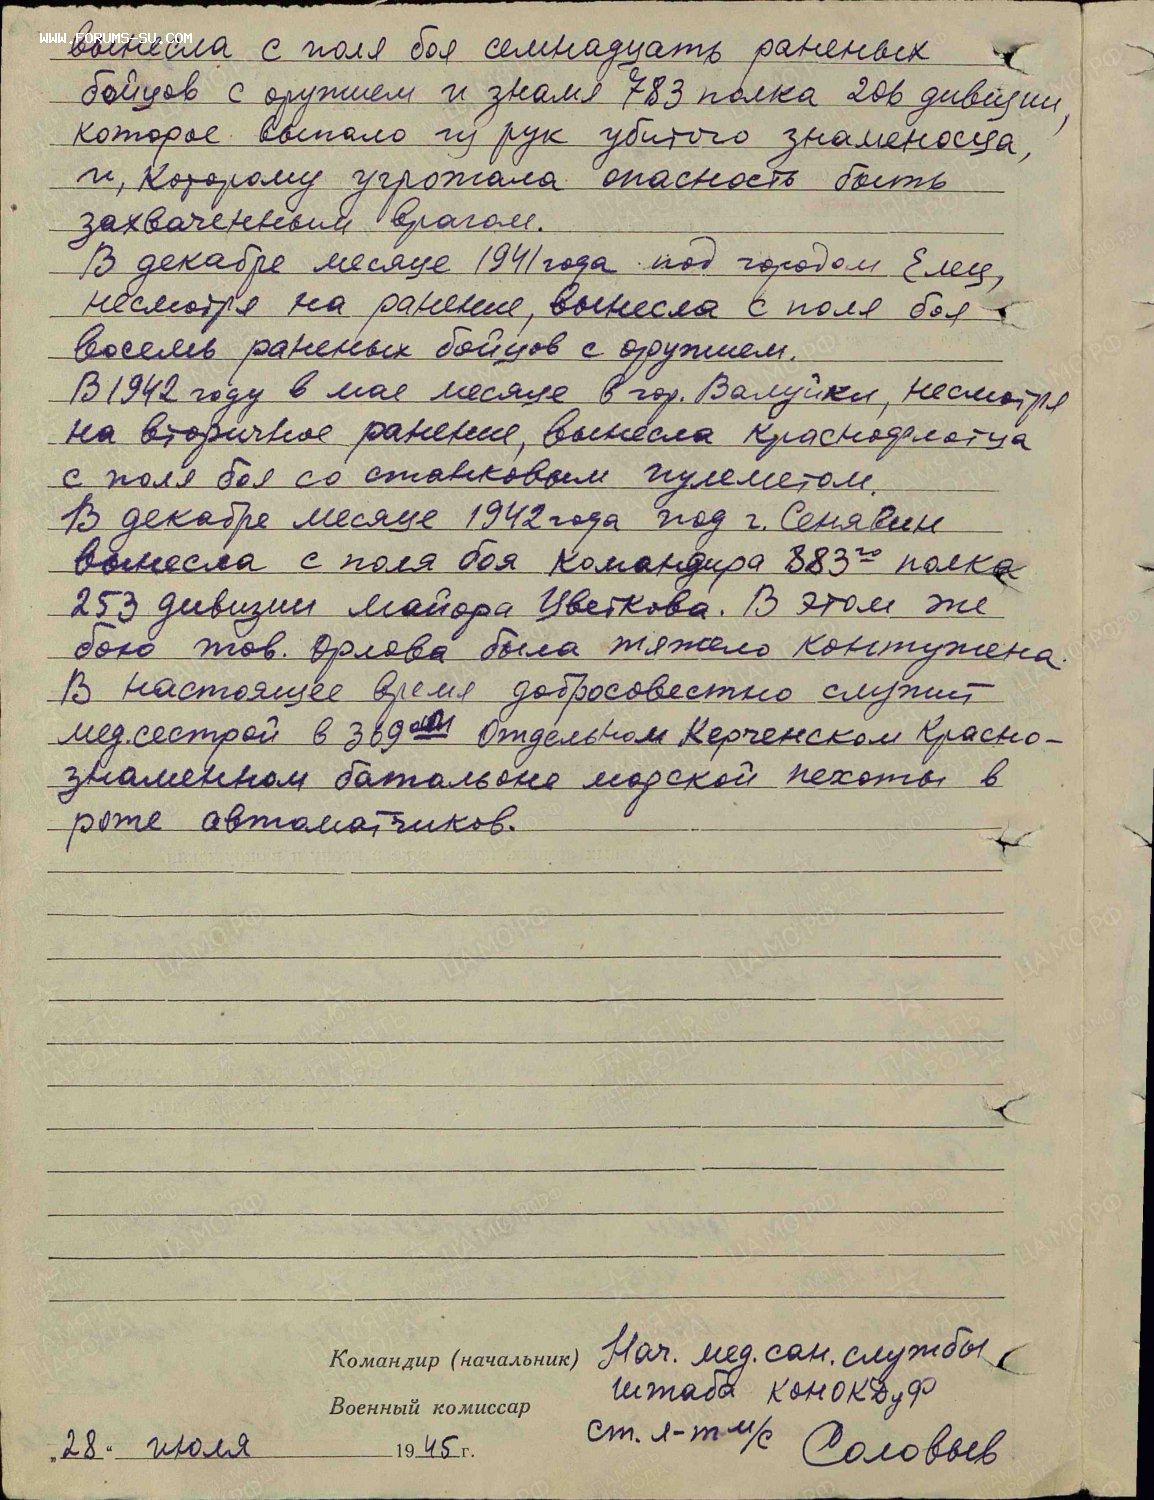 WWW.FORUMS-SU.COM
вынесла с поля боя семнадцать раненых
бойцов с оружием и знамя 783 полка 206 дивизии,
которое выпало из рук убитого знаменосца,
и, которому угрожала опасность быть
захваченным врагом.
В декабре месяце 1941 года под городом Елец,
несмотря на ранение, вынесла с поля боя
восемь раненых бойцов с оружием.
В 1942 году в мае месяце в гор. Валуйки, несмотря
на вторичное ранение, вынесла краснофлотца
с поля боя со станковым пулеметом.
В декабре месяце 1942 года под г. Сенявин
вынесла с поля боя командира 883го полка
253 дивизии майора Цветкова. В этом же
бою тов. Орлова была тяжело контужена.
В настоящее время добросовестно служит
мед.сестрой в 369ом Отдельном Керченском Красно-
знаменном батальоне морской пехоты в
роте автоматчиков.
Командир (начальник) Нач. мед. сан. службы
штаба КОНОКДуФ
Военный комиссар
ст. л-т м/с Соловьев
„28" июля 1945 г.